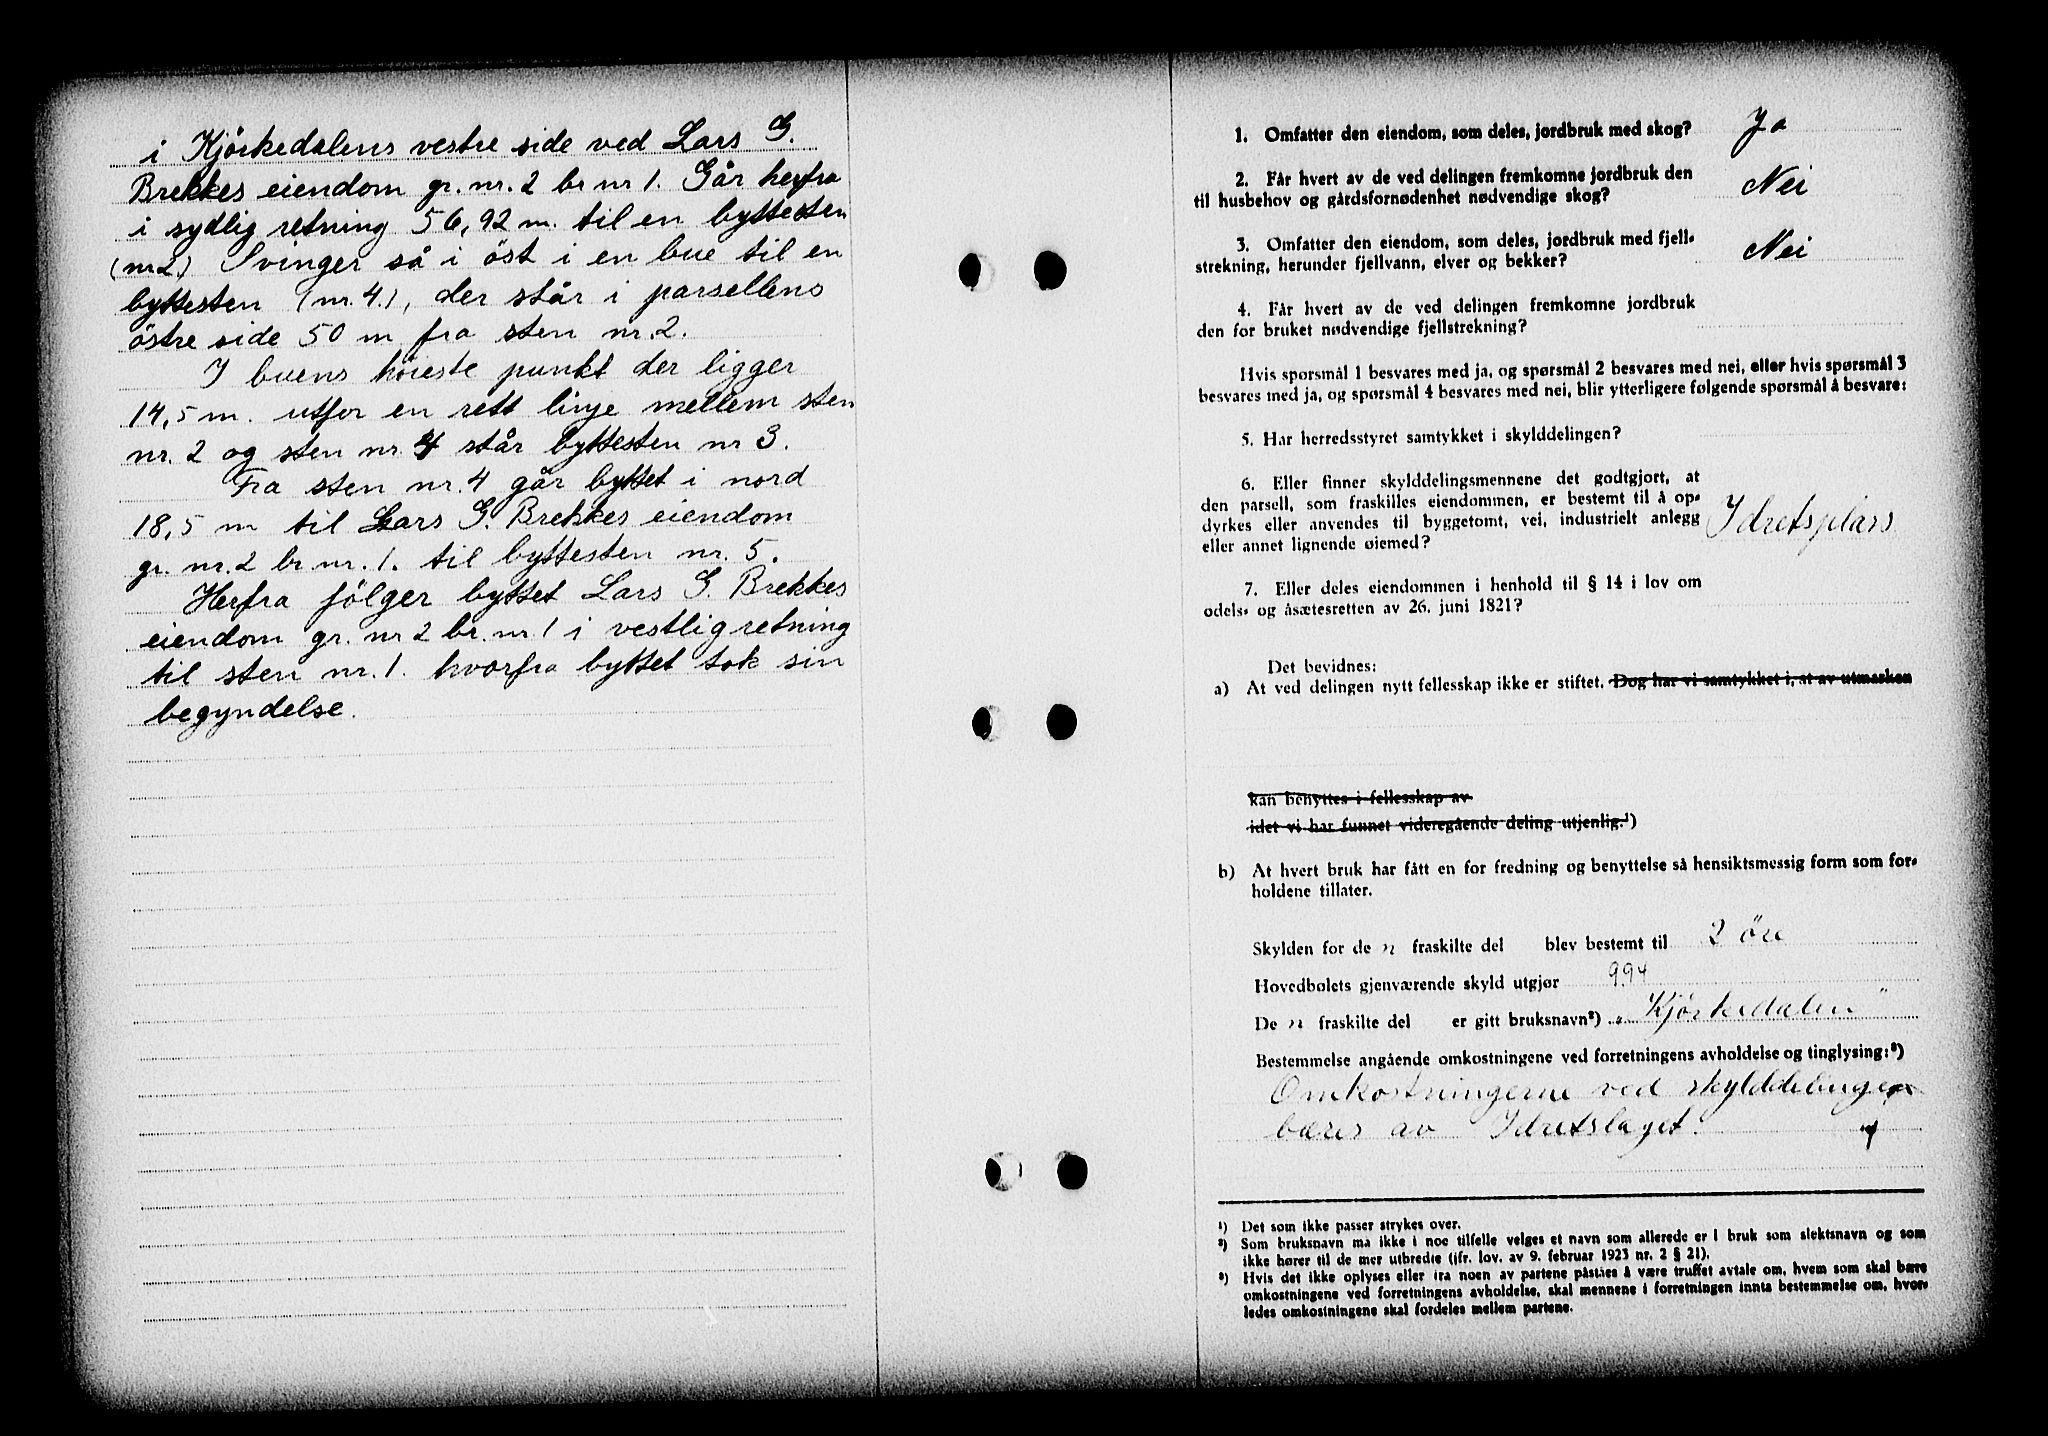 i Kjörkedalens vestre side ved Lars G.
Brekkes eiendom gr. nr. 2 br nr 1. Går herfra
i sydlig retning 56,92 m. til en byttesten
(nr 2.) Svinger så i öst i en bue til en
byttesten (nr. 4.), der står i parsellens
östre side 50 m fra sten nr. 2.
I buens höieste punkt der ligger
14,5 m. utfor en rett linje mellem sten
nr. 2 og sten nr. 4 står byttesten nr 3.
Fra sten nr. 4 går byttet i nord
18,5 m til Lars G. Brekkes eiendom
gr. nr. 2 br. nr. 1. til byttesten nr. 5.
Herfra fölger byttet Lars G. Brekkes
eiendom gr. nr 2 br. nr 1 i vestlig retning
til sten nr. 1. hvorfra byttet tok sin
begyndelse.
1. Omfatter den eiendom, som deles, jordbruk med skog? Ja
2. Får hvert av de ved delingen fremkomne jordbruk den
til husbehov og gårdsfornødenhet nødvendige skog? Nei
3. Omfatter den eiendom, som deles, jordbruk med fjell-
strekning, herunder fjellvann, elver og bekker? Nei
4. Får hvert av de ved delingen fremkomne jordbruk
den for bruket nødvendige fjellstrekning?
Hvis spørsmål 1 besvares med ja, og spørsmål 2 besvares med nei, eller hvis spørsmål 3
besvares med ja, og spørsmål 4 besvares med nei, blir ytterligere følgende spørsmål å besvare:
5. Har herredsstyret samtykket i skylddelingen?
6. Eller finner skylddelingsmennene det godtgjort, at
den parsell, som fraskilles eiendommen, er bestemt til å op-
dyrkes eller anvendes til byggetomt, vei, industrielt anlegg
eller annet lignende øiemed? Idretsplass
7. Eller deles eiendommen i henhold til § 14 i lov om
odels- og åsætesretten av 26. juni 1821?
Det bevidnes:
a) At ved delingen nytt fellesskap ikke er stiftet. Dog har vi samtykket i, at av utmarken
kan benyttes i fellesskap av
idet vi har funnet videregående deling utjenlig.¹)
b) At hvert bruk har fått en for fredning og benyttelse så hensiktsmessig form som for-
holdene tillater.
Skylden for de n fraskilte del blev bestemt til 2 öre
Hovedbølets gjenværende skyld utgjør 9.94
De n fraskilte del er gitt bruksnavn²) „Kjörkedalen"
Bestemmelse angående omkostningene ved forretningens avholdelse og tinglysing:³)
Omkostningerne ved skylddelingen
bæres av Idretslaget.
¹) Det som ikke passer strykes over.
²) Som bruksnavn må ikke i noe tilfelle velges et navn som allerede er i bruk som slektsnavn og som
ikke hører til de mer utbredte (jfr. lov. av 9. februar 1923 nr. 2 § 21).
³) Hvis det ikke oplyses eller fra noen av partene påstås å være truffet avtale om, hvem som skal bære
omkostningene ved forretningens avholdelse, skal mennene i forretningen innta bestemmelse om, hvor-
ledes omkostningene skal fordeles mellem partene.